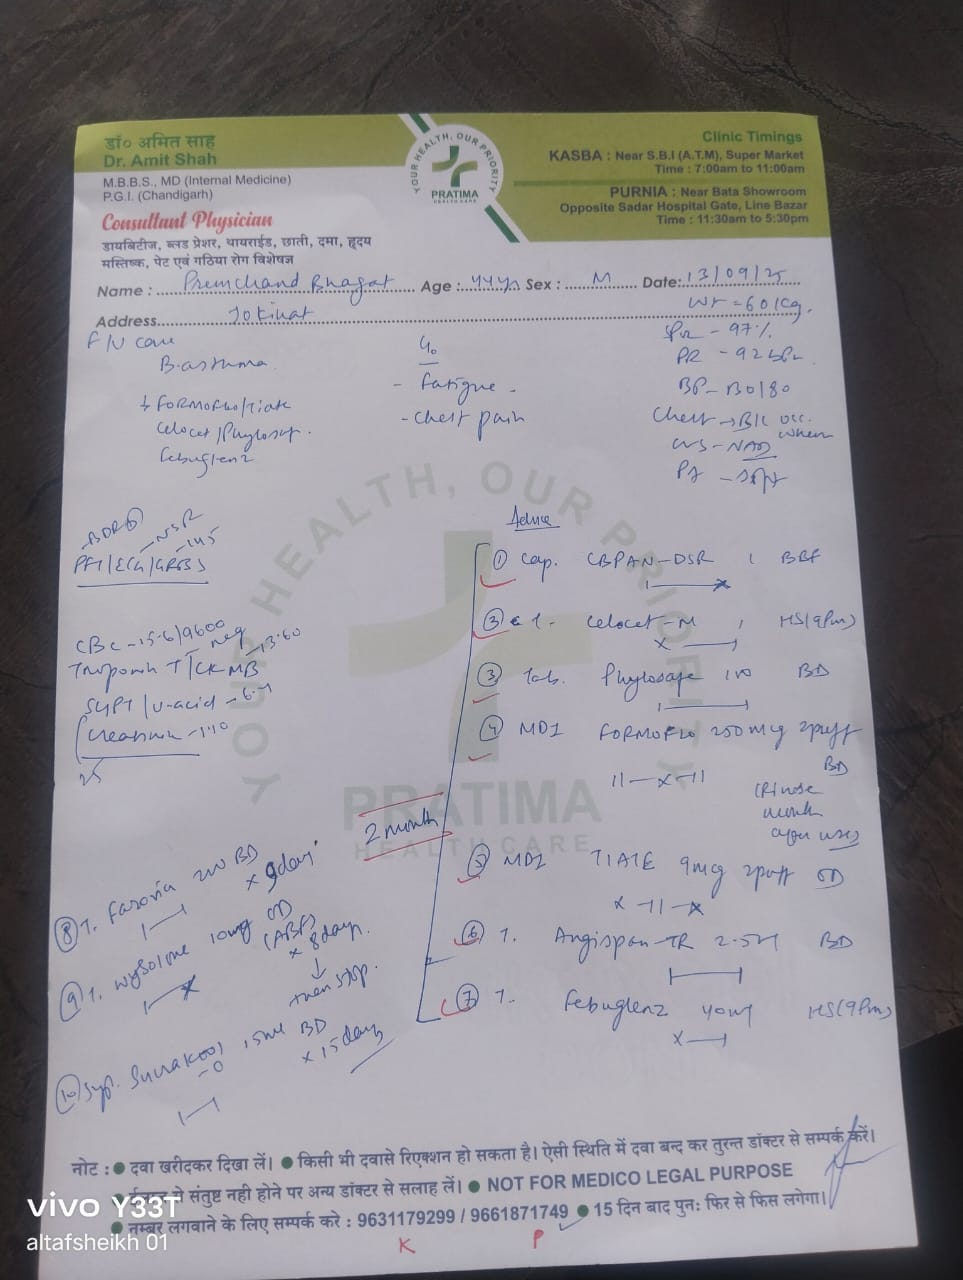 डॉ० अमित साह
Dr. Amit Shah
M.B.B.S., MD (Internal Medicine)
P.G.I. (Chandigarh)
Consultant Physician
डायबिटीज, ब्लड प्रेशर, थायराईड, छाती, दमा, हृदय
मस्तिष्क, पेट एवं गठिया रोग विशेषज्ञ
YOUR HEALTH, OUR PRIORITY
PRATIMA
HEALTH CARE
Clinic Timings
KASBA : Near S.B.I (A.T.M), Super Market
Time : 7:00am to 11:00am
PURNIA : Near Bata Showroom
Opposite Sadar Hospital Gate, Line Bazar
Time : 11:30am to 5:30pm
Name : Premchand Bhagat Age : 44yrs Sex : M Date: 13/09/25
Address Jokihat
Wt - 60 kg.
F/U case
B. asthma
FORMOFLO/TIATE
Celocet/Phylosaf.
Febuglenz
c/o
- Fatigue -
- Chest pain
- 97%
PR - 92 bpm
BP - 130/80
Chest → B/L occ.
CVS - NAD
PA - Soft
PFT/ECG/GRBS
CBC - 15.6/9600
Troponin T/CK MB
neg
SGPT/U-acid
Creatinine - 1.10
Advice
① Cap. CBPAN-DSR 1 BBF
Celocet-M 1 HS(9Pm)
③ Tab. Phylosafe BD
④ MDI FORMOFLO 250 mcg 2puff
BD
(Rinse
mouth
after use)
⑤ MDI TIATE 9mcg 2puff OD
⑥ T. Angispan-TR 2.5 BD
⑦ T. Febuglenz 40mg HS(9Pm)
2 month
⑧ T. Farovia 200 BD
⑨ T. Wysolone 10mg OD
(ABF)
× 8 days.
↓
then stop.
⑩ Syp. Sucrakool 15ml BD
× 15 days
YOUR HEALTH, OUR PRIORITY
PRATIMA
HEALTH CARE
नोट : ● दवा खरीदकर दिखा लें। ● किसी भी दवासे रिएक्शन हो सकता है। ऐसी स्थिति में दवा बन्द कर तुरन्त डॉक्टर से सम्पर्क करें।
से संतुष्ट नही होने पर अन्य डॉक्टर से सलाह लें। ● NOT FOR MEDICO LEGAL PURPOSE
● नम्बर लगवाने के लिए सम्पर्क करे : 9631179299 / 9661871749 ● 15 दिन बाद पुनः फिर से फिस लगेगा।
K P
vivo Y33T
altafsheikh 01